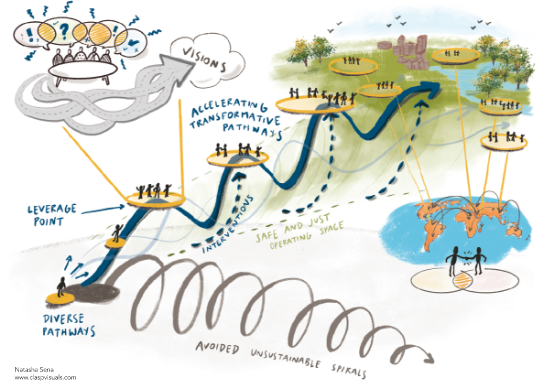 ! ? !
VISIONS
ACCELERATING
TRANSFORMATIVE
PATHWAYS
LEVERAGE
POINT
INTERVENTIONS
SAFE AND JUST
OPERATING SPACE
DIVERSE
PATHWAYS
AVOIDED UNSUSTAINABLE SPIRALS
Natasha Sena
www.claspvisuals.com